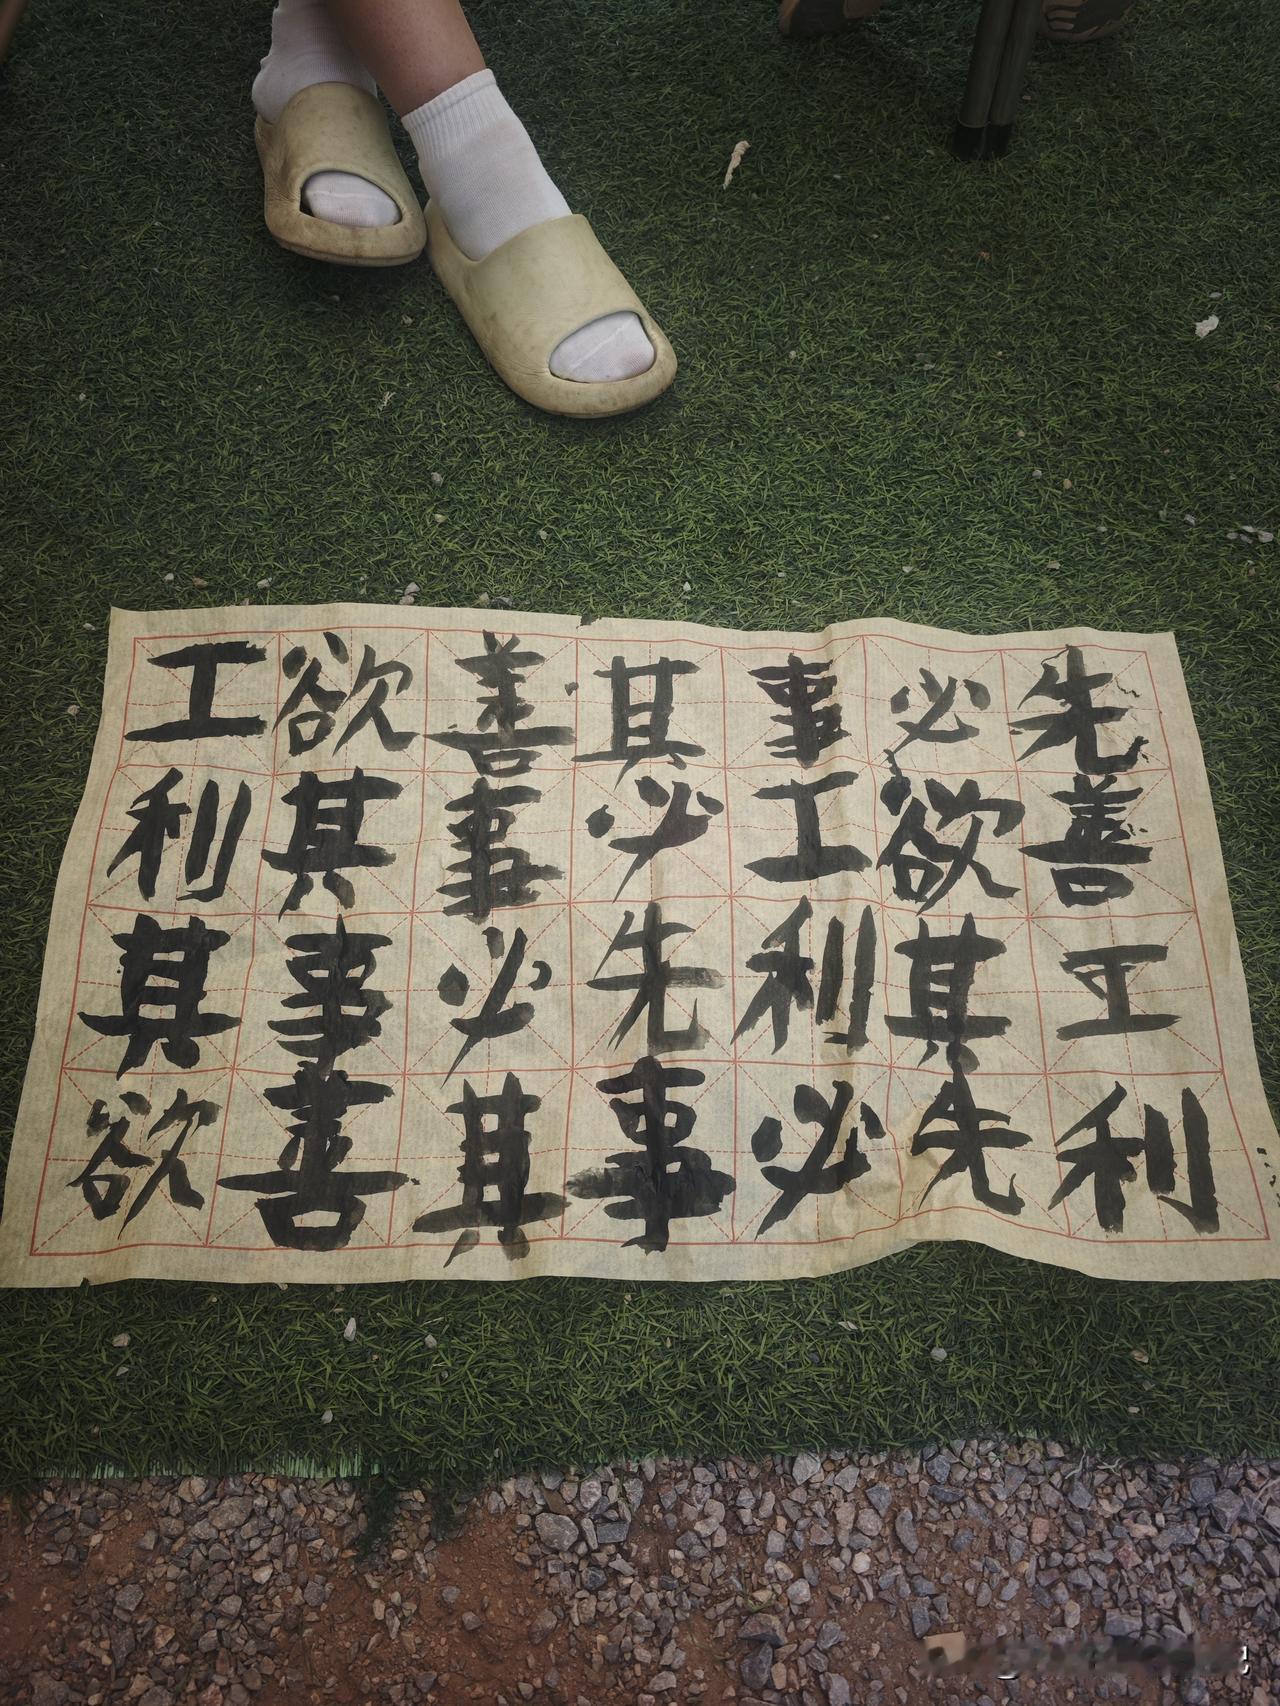 工欲善其事必先
利其事必工欲善
其事必先利其工
欲善其事必先利